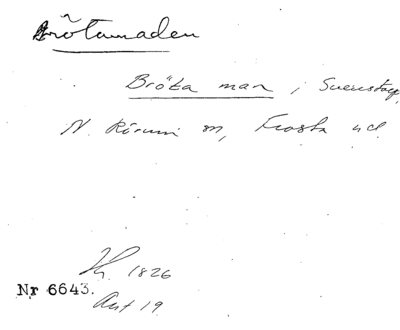 Brötamaden
Bröta mar i Svenstorp,
N. Rörum sn, Frosta hd
1826
Nr 6643.
Akt 19